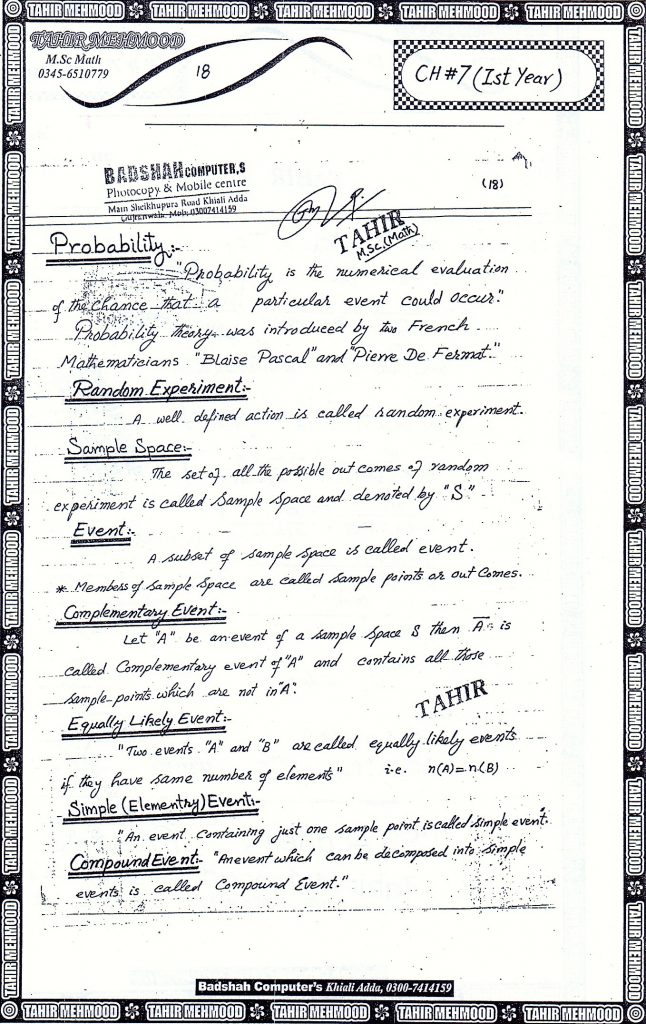 TAHIR MEHMOOD TAHIR MEHMOOD TAHIR MEHMOOD TAHIR MEHMOOD TAHIR MEHMOOD
TAHIR MEHMOOD
M.Sc Math
0345-6510779
18
CH#7 (Ist Year)
BADSHAH COMPUTER,S
Photocopy & Mobile centre
Main Sheikhupura Road Khiali Adda
Gujranwala. Mob: 03007414159
(18)
TAHIR
M.Sc.(Math)
Probability:-
"Probability is the numerical evaluation
of the chance that a particular event could occur."
Probability theory was introduced by two French
Mathematicians "Blaise Pascal" and "Pierre De Fermat."
Random Experiment:-
A well defined action is called random experiment.
Sample Space:-
The set of all the possible out comes of random
experiment is called Sample Space and denoted by "S"
Event:-
A subset of sample space is called event.
* Members of sample space are called sample points or out Comes.
Complementary Event:-
Let "A" be an event of a sample space S then A̅ is
called Complementary event of "A" and contains all those
sample points which are not in "A".
TAHIR
Equally Likely Event:-
"Two events "A" and "B" are called equally likely events
if they have same number of elements" i.e. n(A)=n(B)
Simple (Elementry) Event:-
"An event containing just one sample point is called simple event."
Compound Event:- "An event which can be decomposed into simple
events is called Compound Event."
Badshah Computer's Khiali Adda, 0300-7414159
TAHIR MEHMOOD TAHIR MEHMOOD TAHIR MEHMOOD TAHIR MEHMOOD TAHIR MEHMOOD